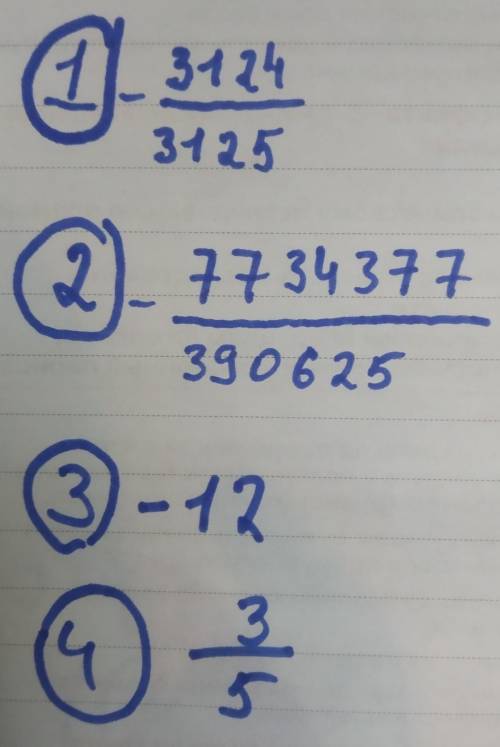 1 - 3124
3125
2 - 7734377
390625
3 - 12
4 3
5